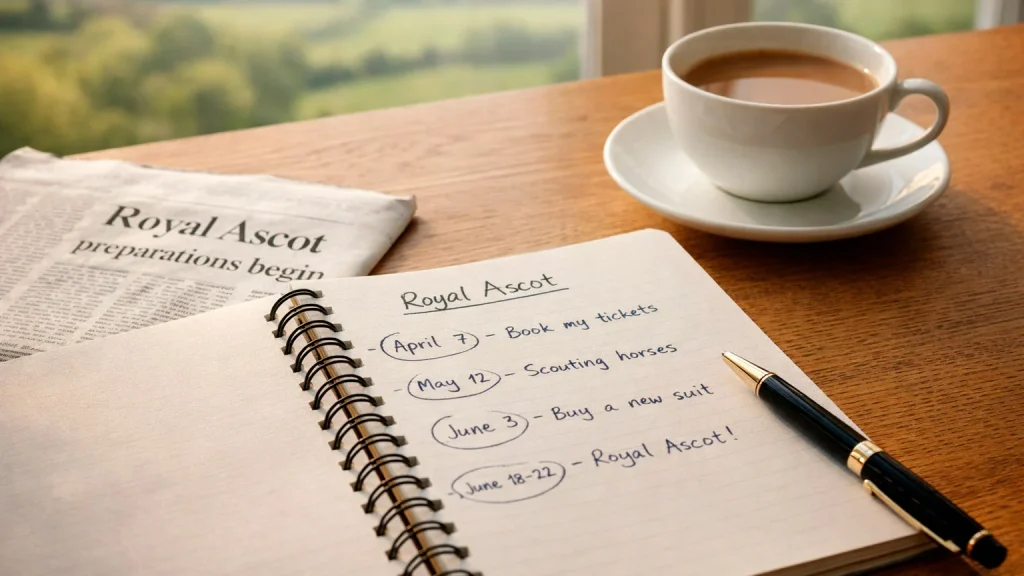 Royal Ascot
preparations begin
Royal Ascot
- April 7 - Book my tickets
- May 12 - Scouting horses
June 3 - Buy a new suit
- June 18-22 - Royal Ascot!